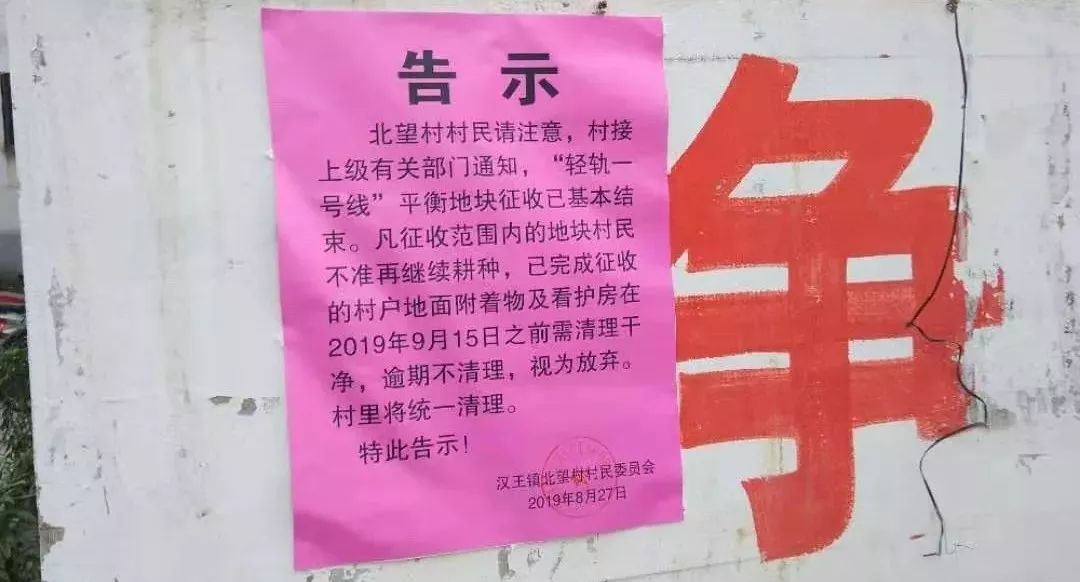 告示
北望村村民请注意，村接
上级有关部门通知，“轻轨一
号线”平衡地块征收已基本结
束。凡征收范围内的地块村民
不准再继续耕种，已完成征收
的村户地面附着物及看护房在
2019年9月15日之前需清理干
净，逾期不清理，视为放弃。
村里将统一清理。
特此告示！
汉王镇北望村村民委员会
2019年8月27日
争